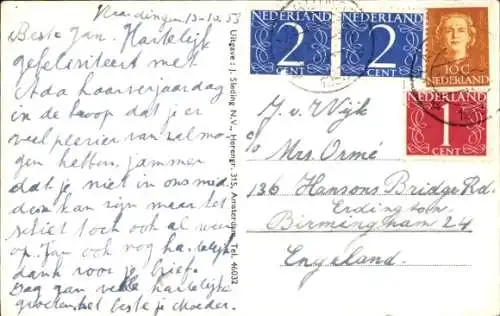 Vlaardingen 13-10.53
Beste Jan. Hartelijk
gefeliciteert met
Ada haar verjaardag
in de hoop dat je er
veel plezier van zal mo-
gen hebben, jammer
dat je niet in ons mid
den kan zijn maar het
schiet toch ook al weer
op. Jan ook nog hartelijk
dank voor je brief.
Dag Jan vele hartelijke
groeten, het beste je Moeder.
Uitgave: J. Sleding N.V., Herengr. 315, Amsterdam, Tel. 46032
2
CENT
NEDERLAND
2
CENT
NEDERLAND
10C
NEDERLAND
NEDERLAND
1
CENT
J. v. Wijk
c/o
Mrs. Ormé
136 Hansons Bridge Rd.
Erdington
Birmingham 24
Engeland.